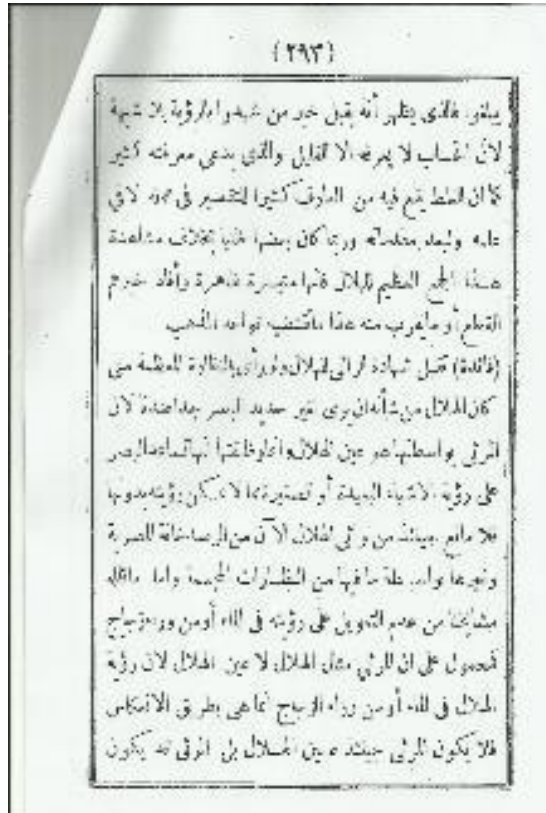 (٢٩٣)
يبلغوا فالذى يظهر أنه يقبل خبر من شهدوا بالرؤية بلا شبهة
لان الحساب لا يعرفه الا القليل والذى يدعى معرفته كثير
كما ان الغلط يقع فيه من العارف كثيرا للتقصير فى لا فى
علمه ولبعد مقدماته وربما كان بعضها ظنيا بخلاف مشاهدة
هذا الجمع العظيم للهلال فانها متيسرة ظاهرة وأفاد خبرهم
القطع أو ما يقرب منه هذا ما تقتضيه قواعد المذهب
(فائدة) تقبل شهادة الرائى للهلال ولو رأى بالنظارة المعظمة متى
كان الهلال من شأنه ان يرى لغير حديد البصر جدا عندهٔ لان
المرئى بواسطتها هو عين الهلال وانما وظيفتها انها تساعد البصر
على رؤية الاشياء البعيدة أو الصغيرة مما لا يمكن رؤيته بدونها
فلا مانع حينئذ من رائى الهلال الآن من الرصدخانة المصرية
وغيرها بواسطة ما فيها من النظارات المجسمة واما ما قاله
مشايخنا من عدم التعويل على رؤيته فى الماء أو من وراء زجاج
فمحمول على ان المرئى مثال الهلال لا عين الهلال لان رؤية
الهلال فى الماء أو من وراء الزجاج انما هى بطريق الانعكاس
فلا يكون المرئى حينئذ عين الهلال بل المرئى له يكون